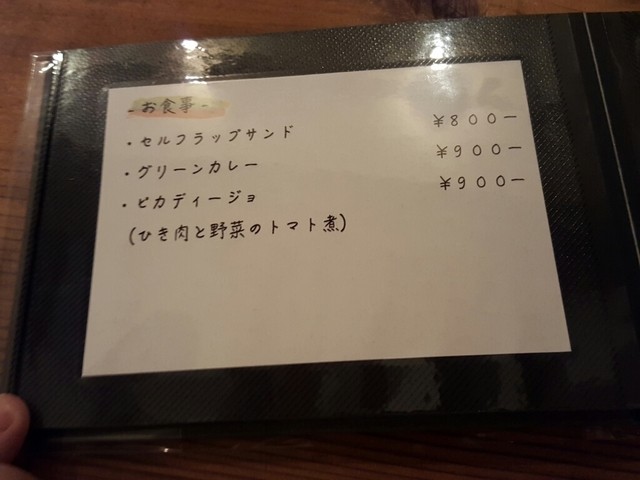 - お食事 -
・セルフラップサンド ¥800ー
・グリーンカレー ¥900ー
・ピカディージョ ¥900ー
(ひき肉と野菜のトマト煮)